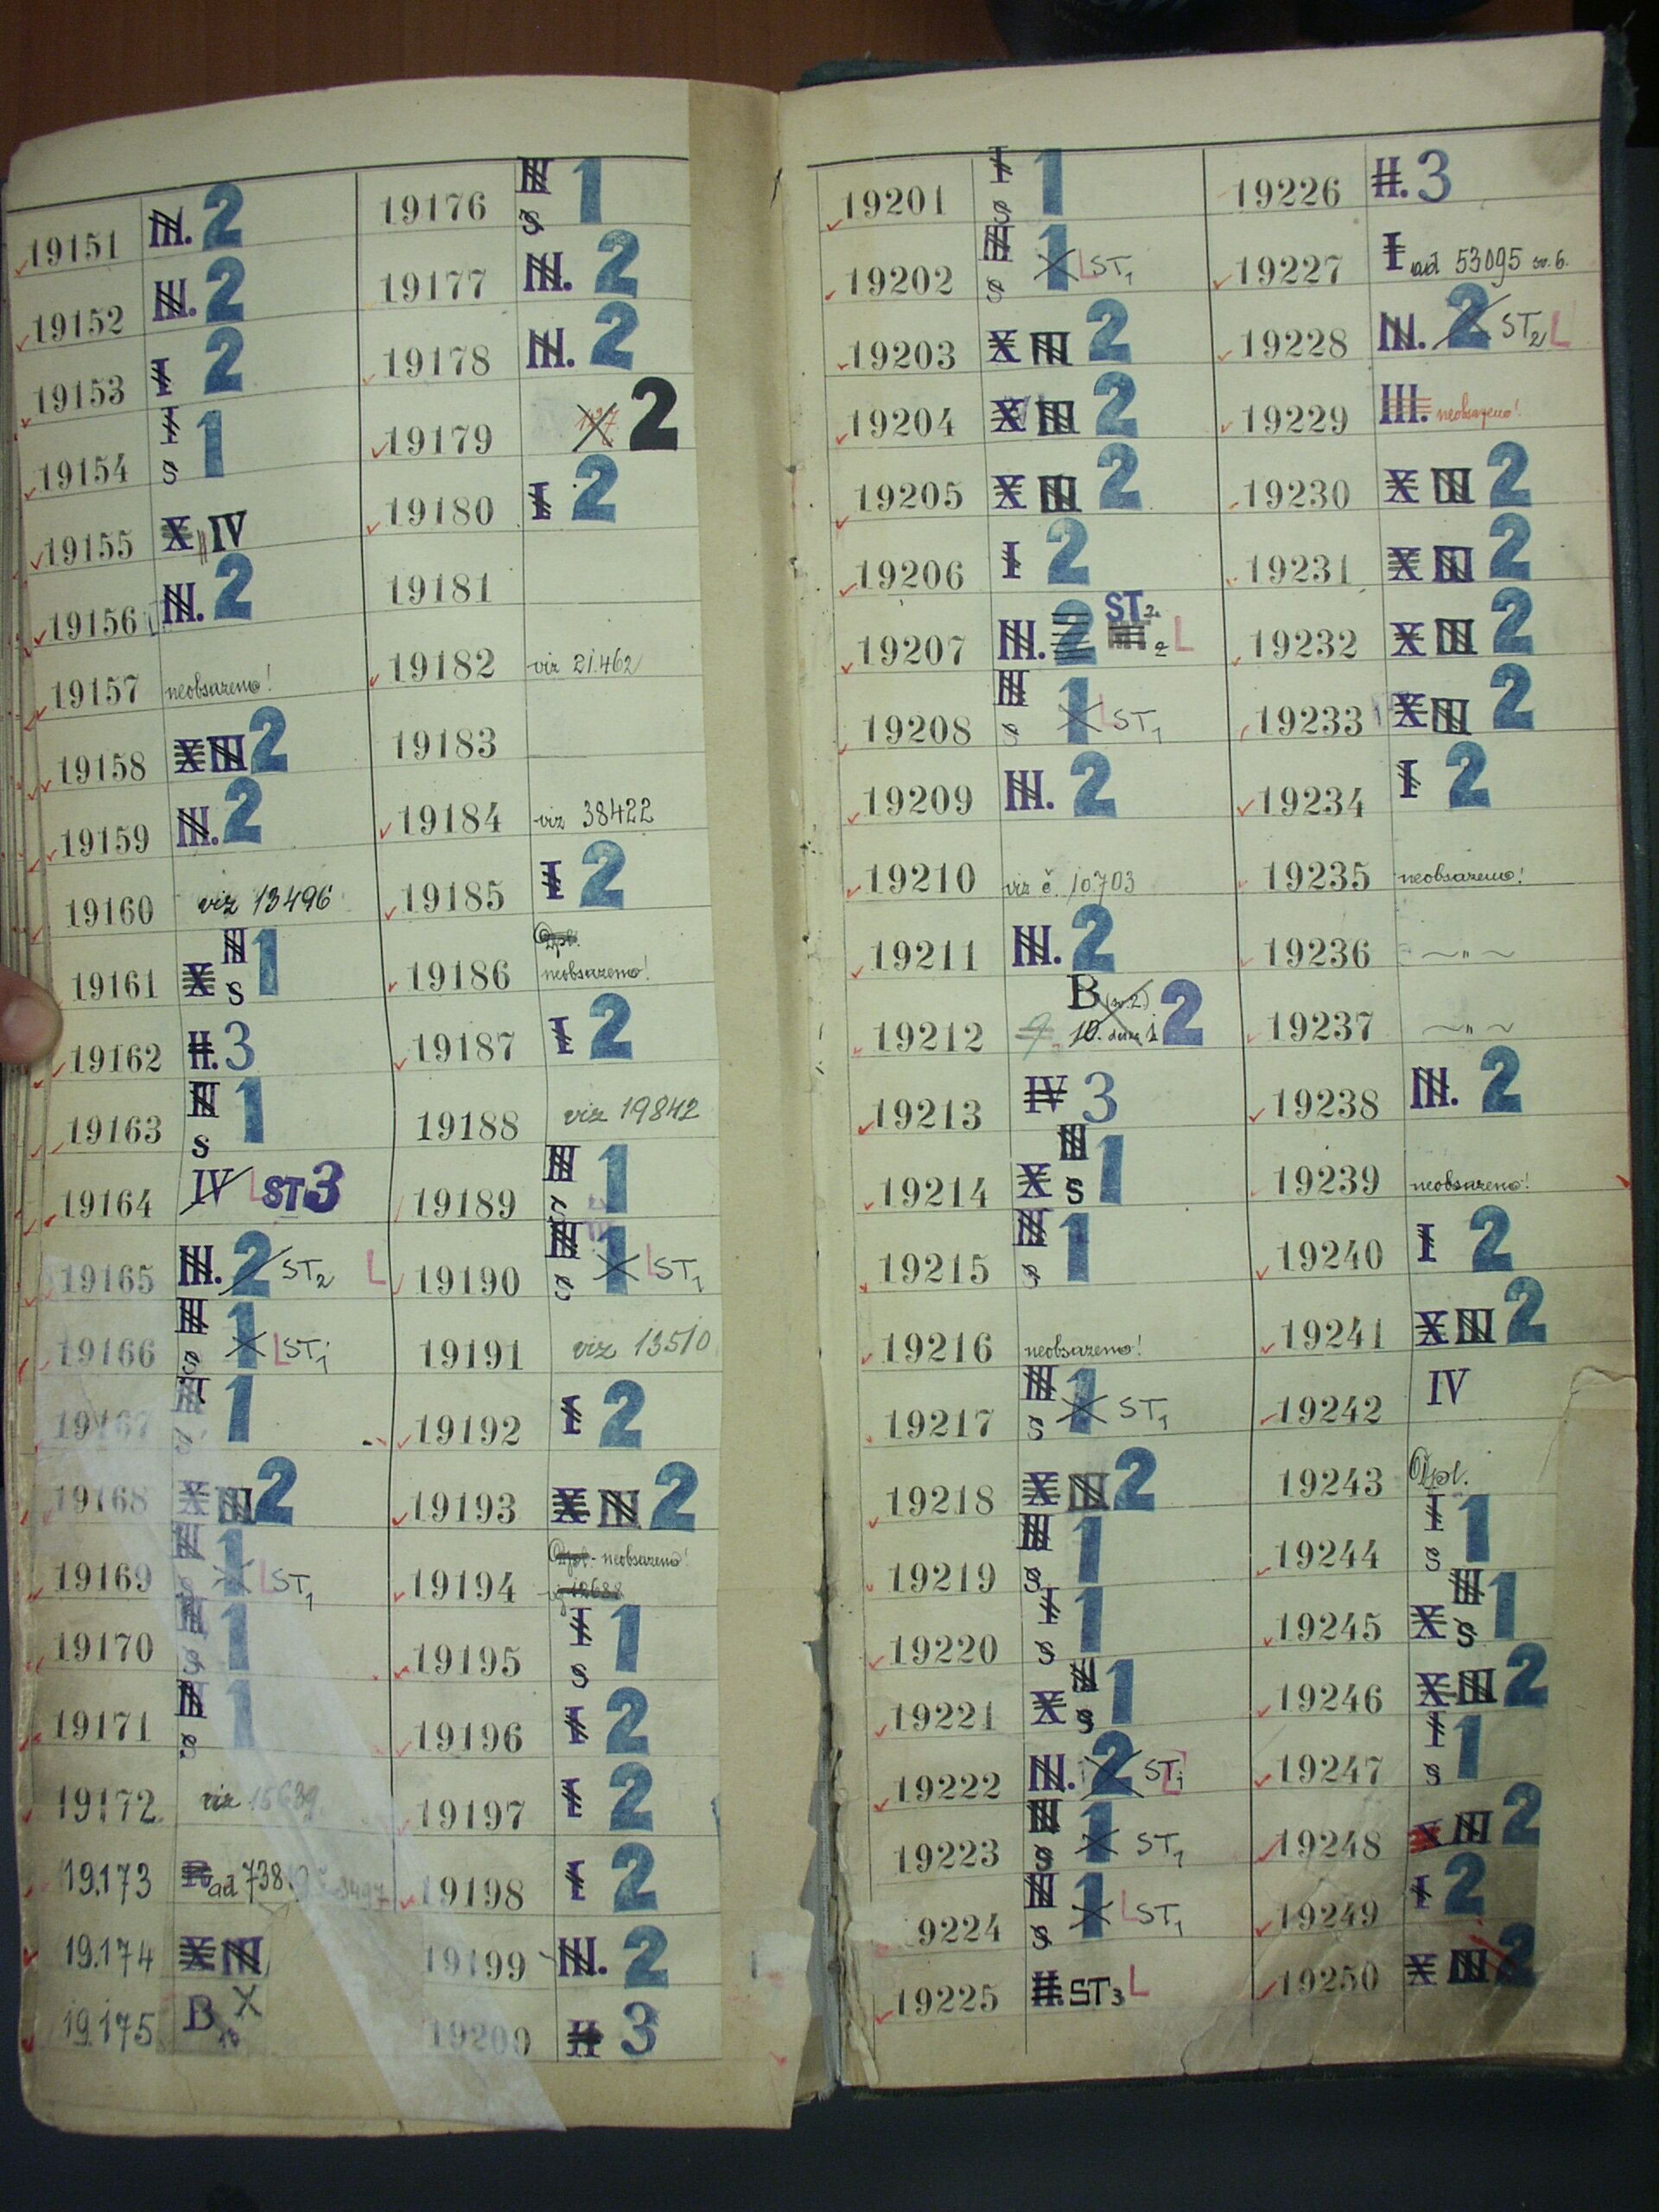 19151 III. 2
19152 III. 2
19153 I 2
19154 I s 1
19155 X IV
19156 III. 2
19157 neobsazeno!
19158 X III 2
19159 III. 2
19160 viz 13496
19161 X III s 1
19162 II. 3
19163 III s 1
19164 IV L ST 3
19165 III. 2 ST2 L
19166 III s 1 L ST1
19167 III s 1
19168 X III 2
19169 III s 1 L ST1
19170 III s 1
19171 III s 1
19172 viz
19.173 ad 738
19.174 X III
19.175 B X
19176 III s 1
19177 III. 2
19178 III. 2
19179 2
19180 I 2
19181
19182 viz 21.462
19183
19184 viz 38422
19185 I 2
19186 Dpl. neobsazeno!
19187 I 2
19188 viz 19842
19189 III s 1
19190 III s 1 L ST1
19191 viz 13510
19192 I 2
19193 X III 2
19194 Dpl. neobsazeno!
19195 I s 1
19196 I 2
19197 I 2
19198 I 2
19199 III. 2
19200 II 3
19201 I s 1
19202 III s 1 L ST1
19203 X III 2
19204 X III 2
19205 X III 2
19206 I 2
19207 III. 2 ST2 L
19208 III s 1 L ST1
19209 III. 2
19210 viz č. 10.703
19211 III. 2
19212 B (sv. 2) 2
19213 IV 3
19214 X III s 1
19215 III s 1
19216 neobsazeno!
19217 III s 1 ST1
19218 X III 2
19219 III s 1
19220 I s 1
19221 X III s 1
19222 III. 2 ST1 L
19223 III s 1 ST1
9224 III s 1 L ST1
19225 II. ST3 L
19226 II. 3
19227 I ad 53095 sv. 6.
19228 III. 2 ST2 L
19229 III. neobsazeno!
19230 X III 2
19231 X III 2
19232 X III 2
19233 X III 2
19234 I 2
19235 neobsazeno!
19236 ~ " ~
19237 ~ " ~
19238 III. 2
19239 neobsazeno!
19240 I 2
19241 X III 2
19242 IV
19243 Dpl.
19244 I s 1
19245 X III s 1
19246 X III 2
19247 I s 1
19248 X III 2
19249 I 2
19250 X III 2